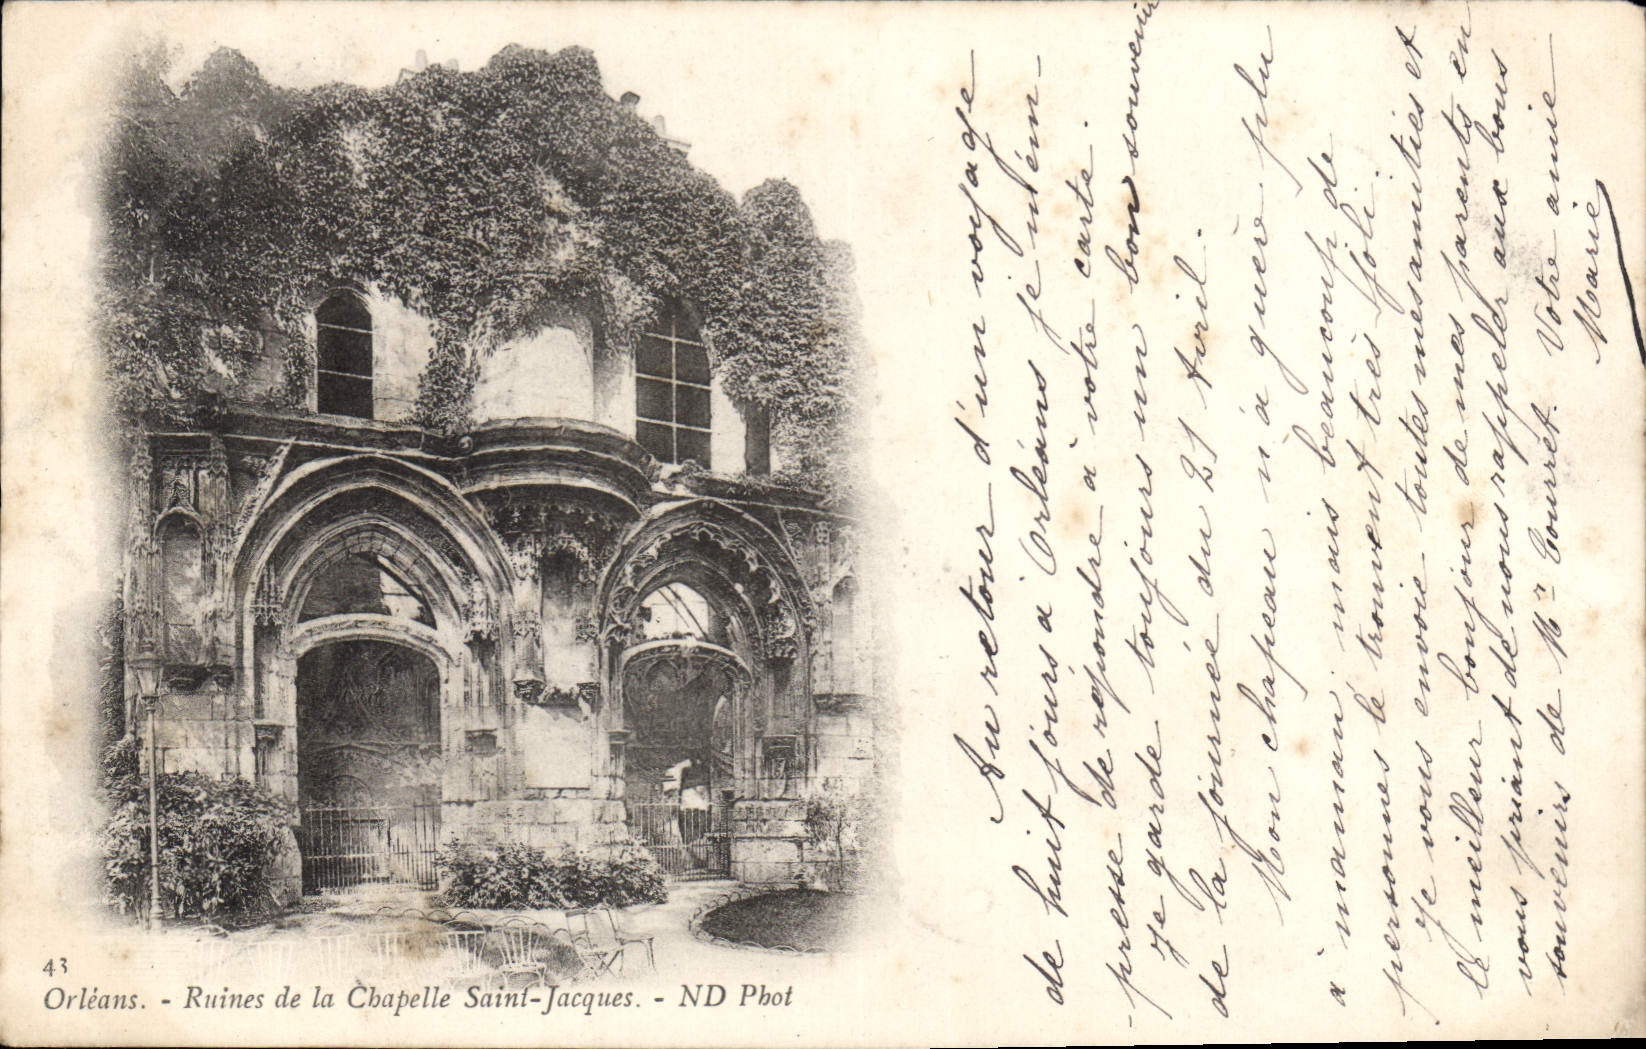 43
Orléans. - Ruines de la Chapelle Saint-Jacques. - ND Phot
Au retour d'un voyage
de huit jours à Orléans je m'em-
-presse de répondre a votre carte.
Je garde toujours un bon souvenir
de la journée du 21 Avril.
Mon chapeau n'a guère plu
à maman mais beaucoup de
personnes le trouvent très joli.
Je vous envoie toutes mes amitiés et
le meilleur bonjour de mes parents en
vous priant de nous rappeler aux bons
souvenirs de Mr Tourret. Votre amie
Marie